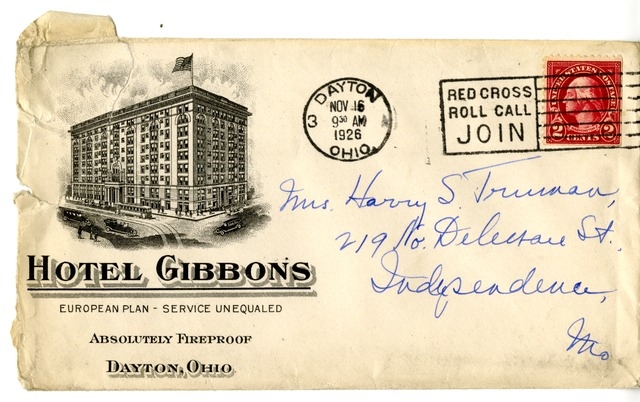 DAYTON
NOV 16
3
9 30 AM
1926
OHIO
RED CROSS
ROLL CALL
JOIN
UNITED STATES POSTAGE
2 CENTS 2
Mrs. Harry S. Truman,
219 No. Delaware St.,
Independence,
Mo
HOTEL GIBBONS
EUROPEAN PLAN - SERVICE UNEQUALED
ABSOLUTELY FIREPROOF
DAYTON, OHIO